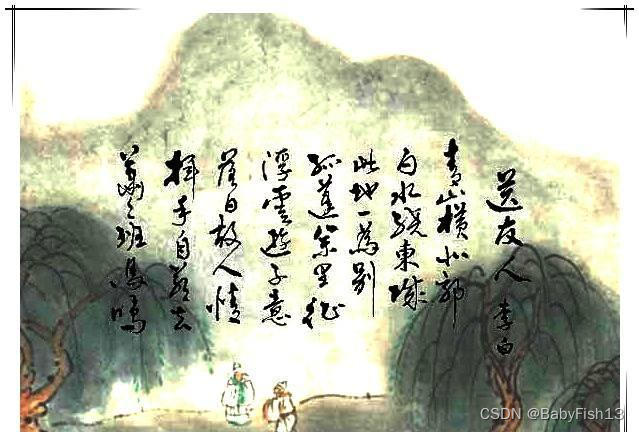 送友人 李白
青山橫北郭
白水繞東城
此地一為別
孤蓬萬里征
浮雲遊子意
落日故人情
揮手自茲去
蕭々班馬鳴
CSDN @BabyFish13